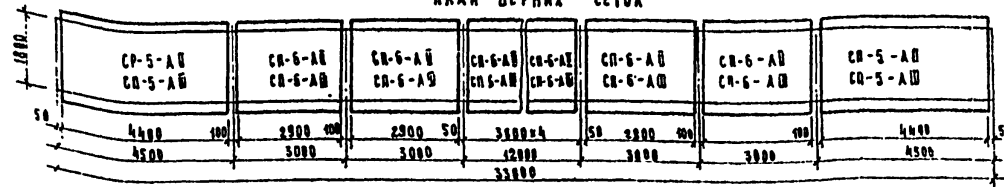 ПЛАН ВЕРХНИХ СЕТОК
1800
СР-5-АII СП-6-АII СП-6-АII СП-6-АII СП-6-АII СП-6-АII СП-6-АII СП-5-АII
СП-5-АIII СП-6-АIII СП-6-АIII СП 6-АIII СП-6-АIII СП-6-АIII СП-6-АIII СП-5-АIII
50 4400 100 2900 100 2900 50 3000×4 50 2800 100 100 4400 5
4500 3000 3000 12000 3000 3000 4500
33000